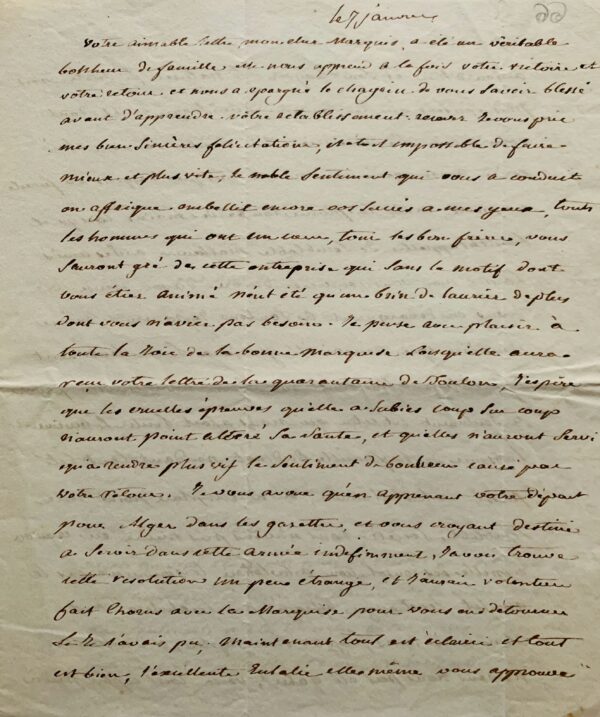 le 7 janvier
66
Votre aimable lettre mon cher Marquis, a été un véritable
bonheur de famille et nous apprend à la fois votre victoire et
votre retour et nous a épargné le chagrin de vous savoir blessé
avant d'apprendre votre rétablissement. recevez je vous prie
mes bien sincères félicitations, il était impossible de faire
mieux et plus vite, le noble sentiment qui vous a conduit
en affrique embellit encore vos succès a mes yeux, touts
les hommes qui ont un cœur, tous les bons frères, vous
sauront gré de cette entreprise qui sans le motif dont
vous étiez animé n'eut été qu'un brin de laurier de plus
dont vous n'aviez pas besoin. Je pense avec plaisir à
toute la joie de la bonne Marquise lorsqu'elle aura
reçu votre lettre de la quarantaine de Toulon, j'espère
que les cruelles épreuves qu'elle a subies coup sur coup
n'auront point altéré sa santé, et qu'elles n'auront servi
qu'a rendre plus vif le sentiment de bonheur causé par
votre retour. Je vous avoue qu'en apprenant votre départ
pour Alger dans les gazettes, et vous croyant destiné
a servir dans cette armée indéfiniment, j'avois trouvé
cette resolution un peu étrange, et j'aurais volontiers
fait chorus avec la Marquise pour vous en détourner
si je l'avais pu, maintenant tout est éclairci et tout
est bien, l'excellente Eulalie elle même vous approuve